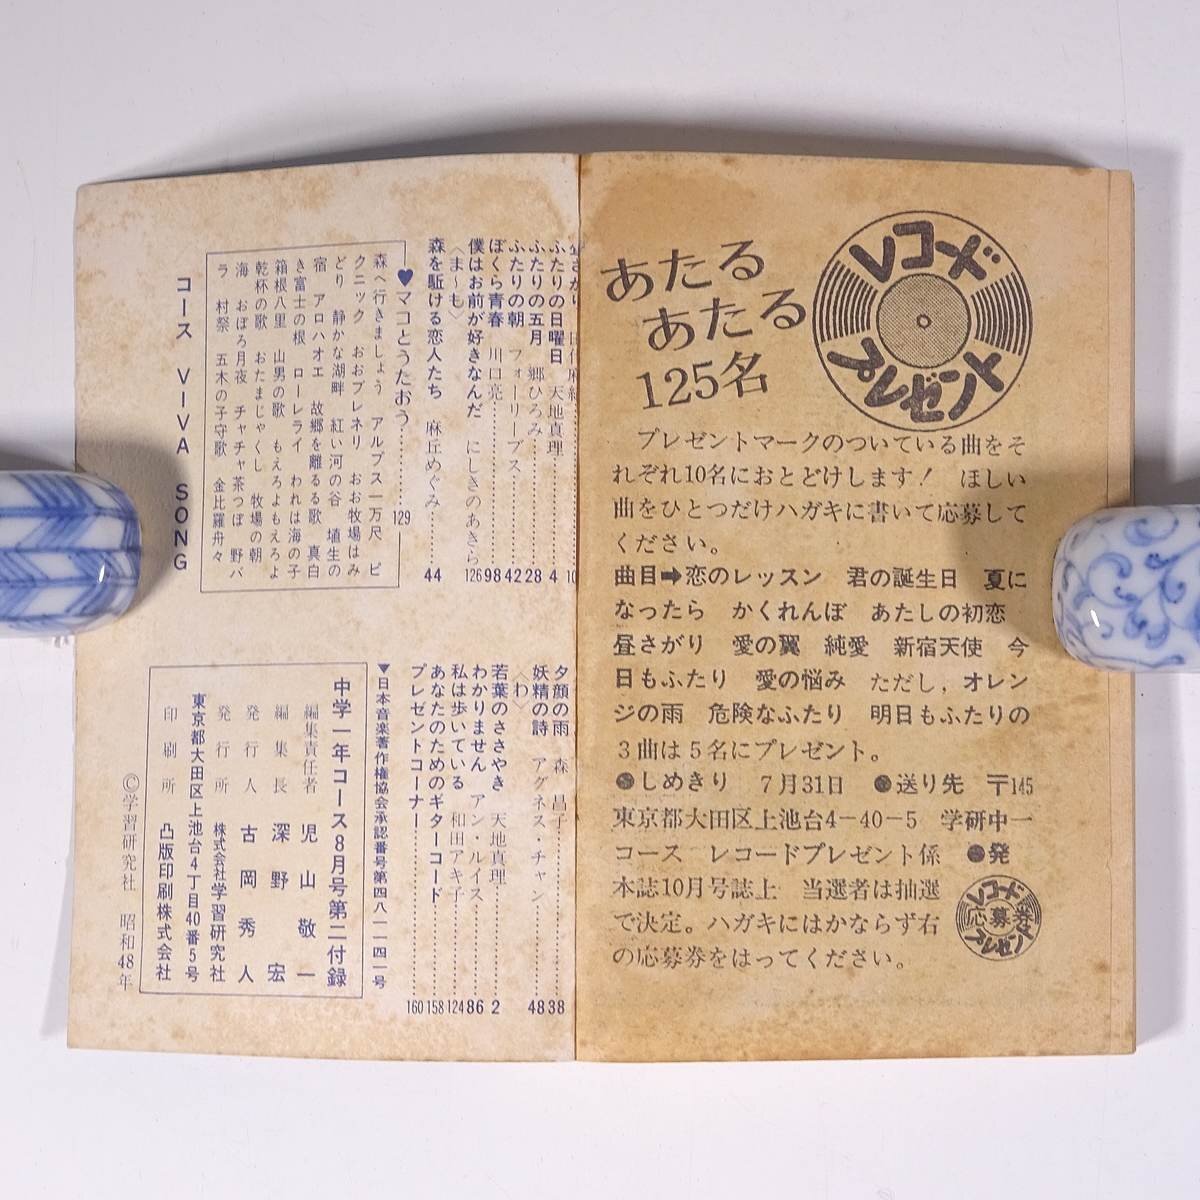 あたる
あたる
125名
レコード
プレゼント
プレゼントマークのついている曲をそ
れぞれ10名におとどけします！　ほしい
曲をひとつだけハガキに書いて応募して
ください。
曲目➡恋のレッスン　君の誕生日　夏に
なったら　かくれんぼ　あたしの初恋
昼さがり　愛の翼　純愛　新宿天使　今
日もふたり　愛の悩み　ただし，オレン
ジの雨　危険なふたり　明日もふたりの
３曲は５名にプレゼント。
●しめきり　７月31日　●送り先　〒145
東京都大田区上池台4－40－5　学研中一
コース　レコードプレゼント係　●発
本誌10月号誌上　当選者は抽選
で決定。ハガキにはかならず右
の応募券をはってください。
レコード
応募券
プレゼント
ふたりの日曜日　天地真理……4
ふたりの五月　郷ひろみ……28
ふたりの朝　フォーリーブス……42
ぼくら青春　川口亮……98
僕はお前が好きなんだ　にしきのあきら……126
〈ま～も〉
森を駈ける恋人たち　麻丘めぐみ……44
♥マコとうたおう……129
森へ行きましょう　アルプス一万尺　ピ
クニック　おおブレネリ　おお牧場はみ
どり　静かな湖畔　紅い河の谷　埴生の
宿　アロハオエ　故郷を離るる歌　真白
き富士の根　ローレライ　われは海の子
箱根八里　山男の歌　もえろよもえろよ
乾杯の歌　おたまじゃくし　牧場の朝
海　おぼろ月夜　チャチャ茶つぼ　野バ
ラ　村祭　五木の子守歌　金比羅舟々
コース　VIVA　SONG
夕顔の雨　森　昌子……38
妖精の詩　アグネス・チャン……48
〈わ〉
若葉のささやき　天地真理……2
わかりません　アン・ルイス……86
私は歩いている　和田アキ子……124
あなたのためのギターコード……158
プレゼントコーナー……160
▼日本音楽著作権協会承認番号第四八一一四一号
中学一年コース８月号第二付録
編集責任者　児山敬一
編集長　深野　宏
発行人　古岡秀人
発行所　株式会社学習研究社
東京都大田区上池台４丁目40番５号
印刷所　凸版印刷株式会社
©学習研究社　昭和48年